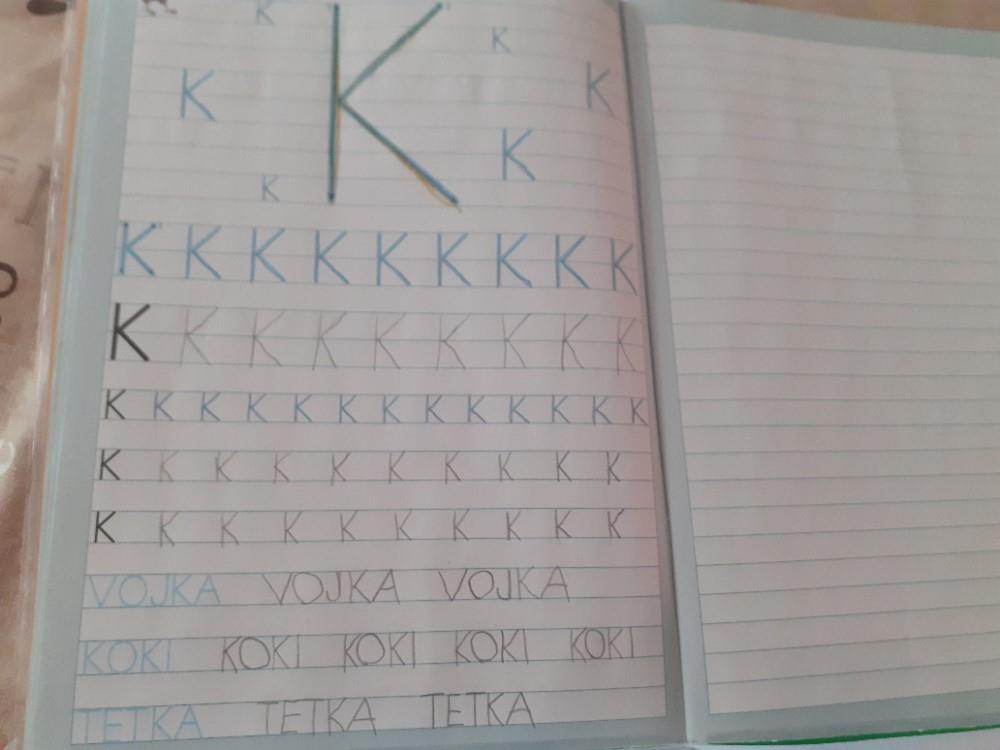 K
K
K
K
K
K
K
K K K K K K K K K
K K K K K K K K K
K K K K K K K K K K K K K
K K K K K K K K K K
K K K K K K K K K K
VOJKA VOJKA VOJKA
KOKI KOKI KOKI KOKI KOKI
TETKA TETKA TETKA